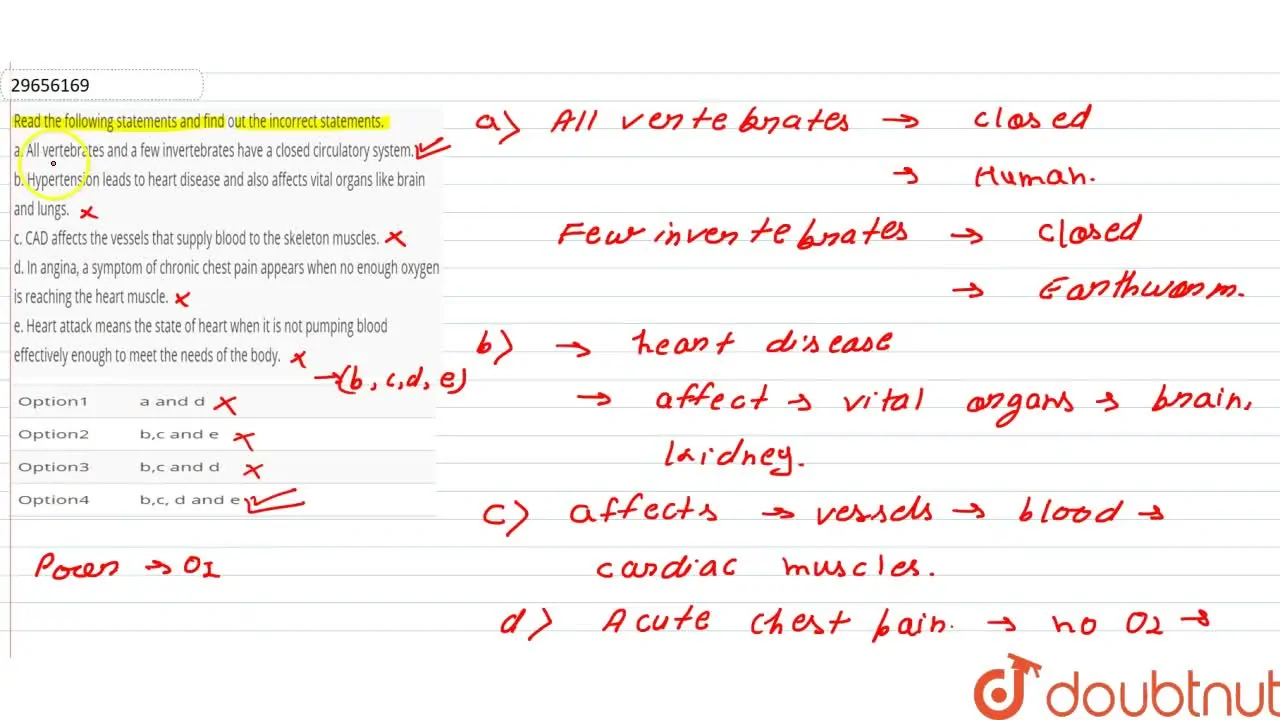 29656169
Read the following statements and find out the incorrect statements.
a. All vertebrates and a few invertebrates have a closed circulatory system.
b. Hypertension leads to heart disease and also affects vital organs like brain
and lungs.
c. CAD affects the vessels that supply blood to the skeleton muscles.
d. In angina, a symptom of chronic chest pain appears when no enough oxygen
is reaching the heart muscle.
e. Heart attack means the state of heart when it is not pumping blood
effectively enough to meet the needs of the body.
→ (b, c, d, e)
Option1 a and d
Option2 b,c and e
Option3 b,c and d
Option4 b,c, d and e
a) All vertebrates → closed
→ Human.
Few invertebrates → closed
→ Earthworm.
b) → heart disease
→ affect → vital organs → brain,
kidney.
c) affects → vessels → blood →
cardiac muscles.
d) Acute chest pain. → no O2 →
doubtnut